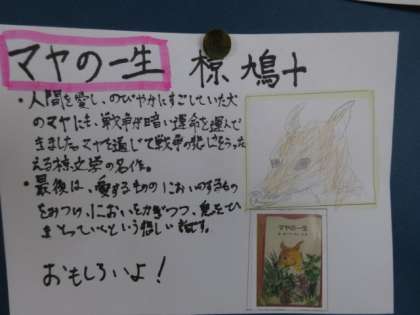 マヤの一生 椋 鳩十
・人間を愛し、のびやかにすごしていた犬
のマヤにも、戦争が暗い運命を運んで
きました。マヤを通じて戦争の悲しさをうった
える椋文学の名作。
・最後は、愛するもの においのするもの
をみつけ、においをかぎつつ、息をひ
きとっていくという悲しい話です。
おもしろいよ！
マヤの一生